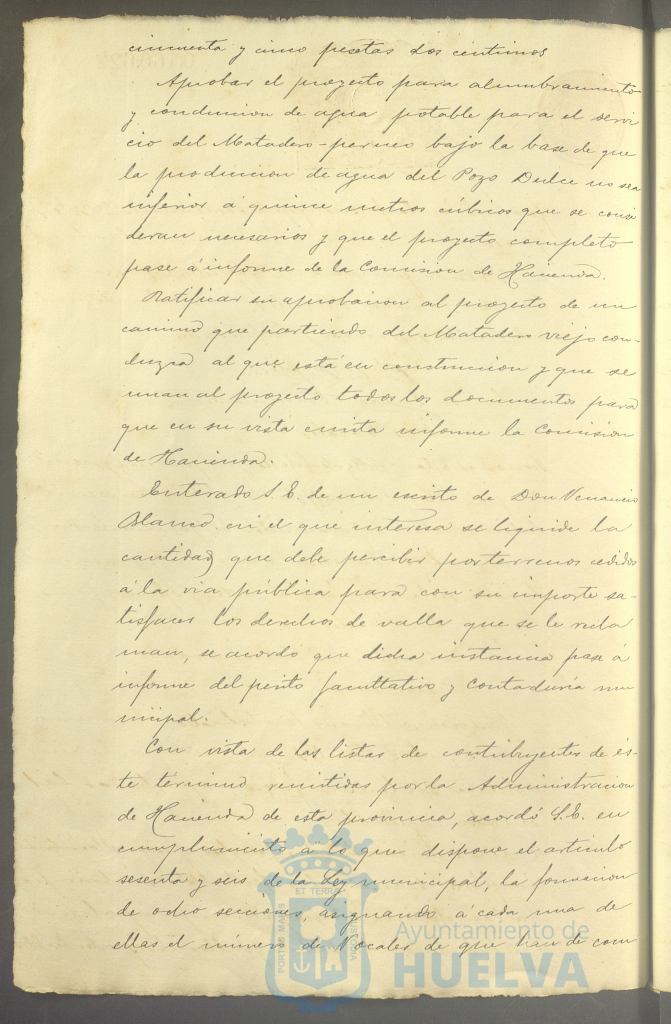 cincuenta y cinco pesetas dos centimos
Aprobar el proyecto para alumbramiento
y conduccion de agua potable para el servi
cio del Matadero-perneo bajo la base de que
la produccion de agua del Pozo Dulce no sea
inferior á quince metros cúbicos que se consi
deran necesarios y que el proyecto completo
pase á informe de la Comision de Hacienda.
Ratificar su aprobacion al proyecto de un
camino que partiendo del Matadero viejo con-
duzca al que está en construccion y que se
unan al proyecto todos los documentos para
que en su vista emita informe la Comision
de Hacienda.
Enterado S. E. de un escrito de Don Venancio
Blanco en el que interesa se liquide la
cantidad que debe percibir por terrenos cedidos
á la via pública para con su importe sa-
tisfacer los derechos de valla que se le recla
man, se acordó que dicha instancia pase á
informe del perito facultativo y Contaduría mu
nicipal.
Con vista de las listas de contribuyentes de és-
te término remitidas por la Administracion
de Hacienda de esta provincia, acordó S. E. en
cumplimiento á lo que dispone el artículo
sesenta y seis de la Ley municipal, la formacion
de ocho secciones, asignando á cada una de
ellas el número de Vocales de que han de com
PORTUS MARIS ET TERRAE CUSTODIA
Ayuntamiento de
HUELVA